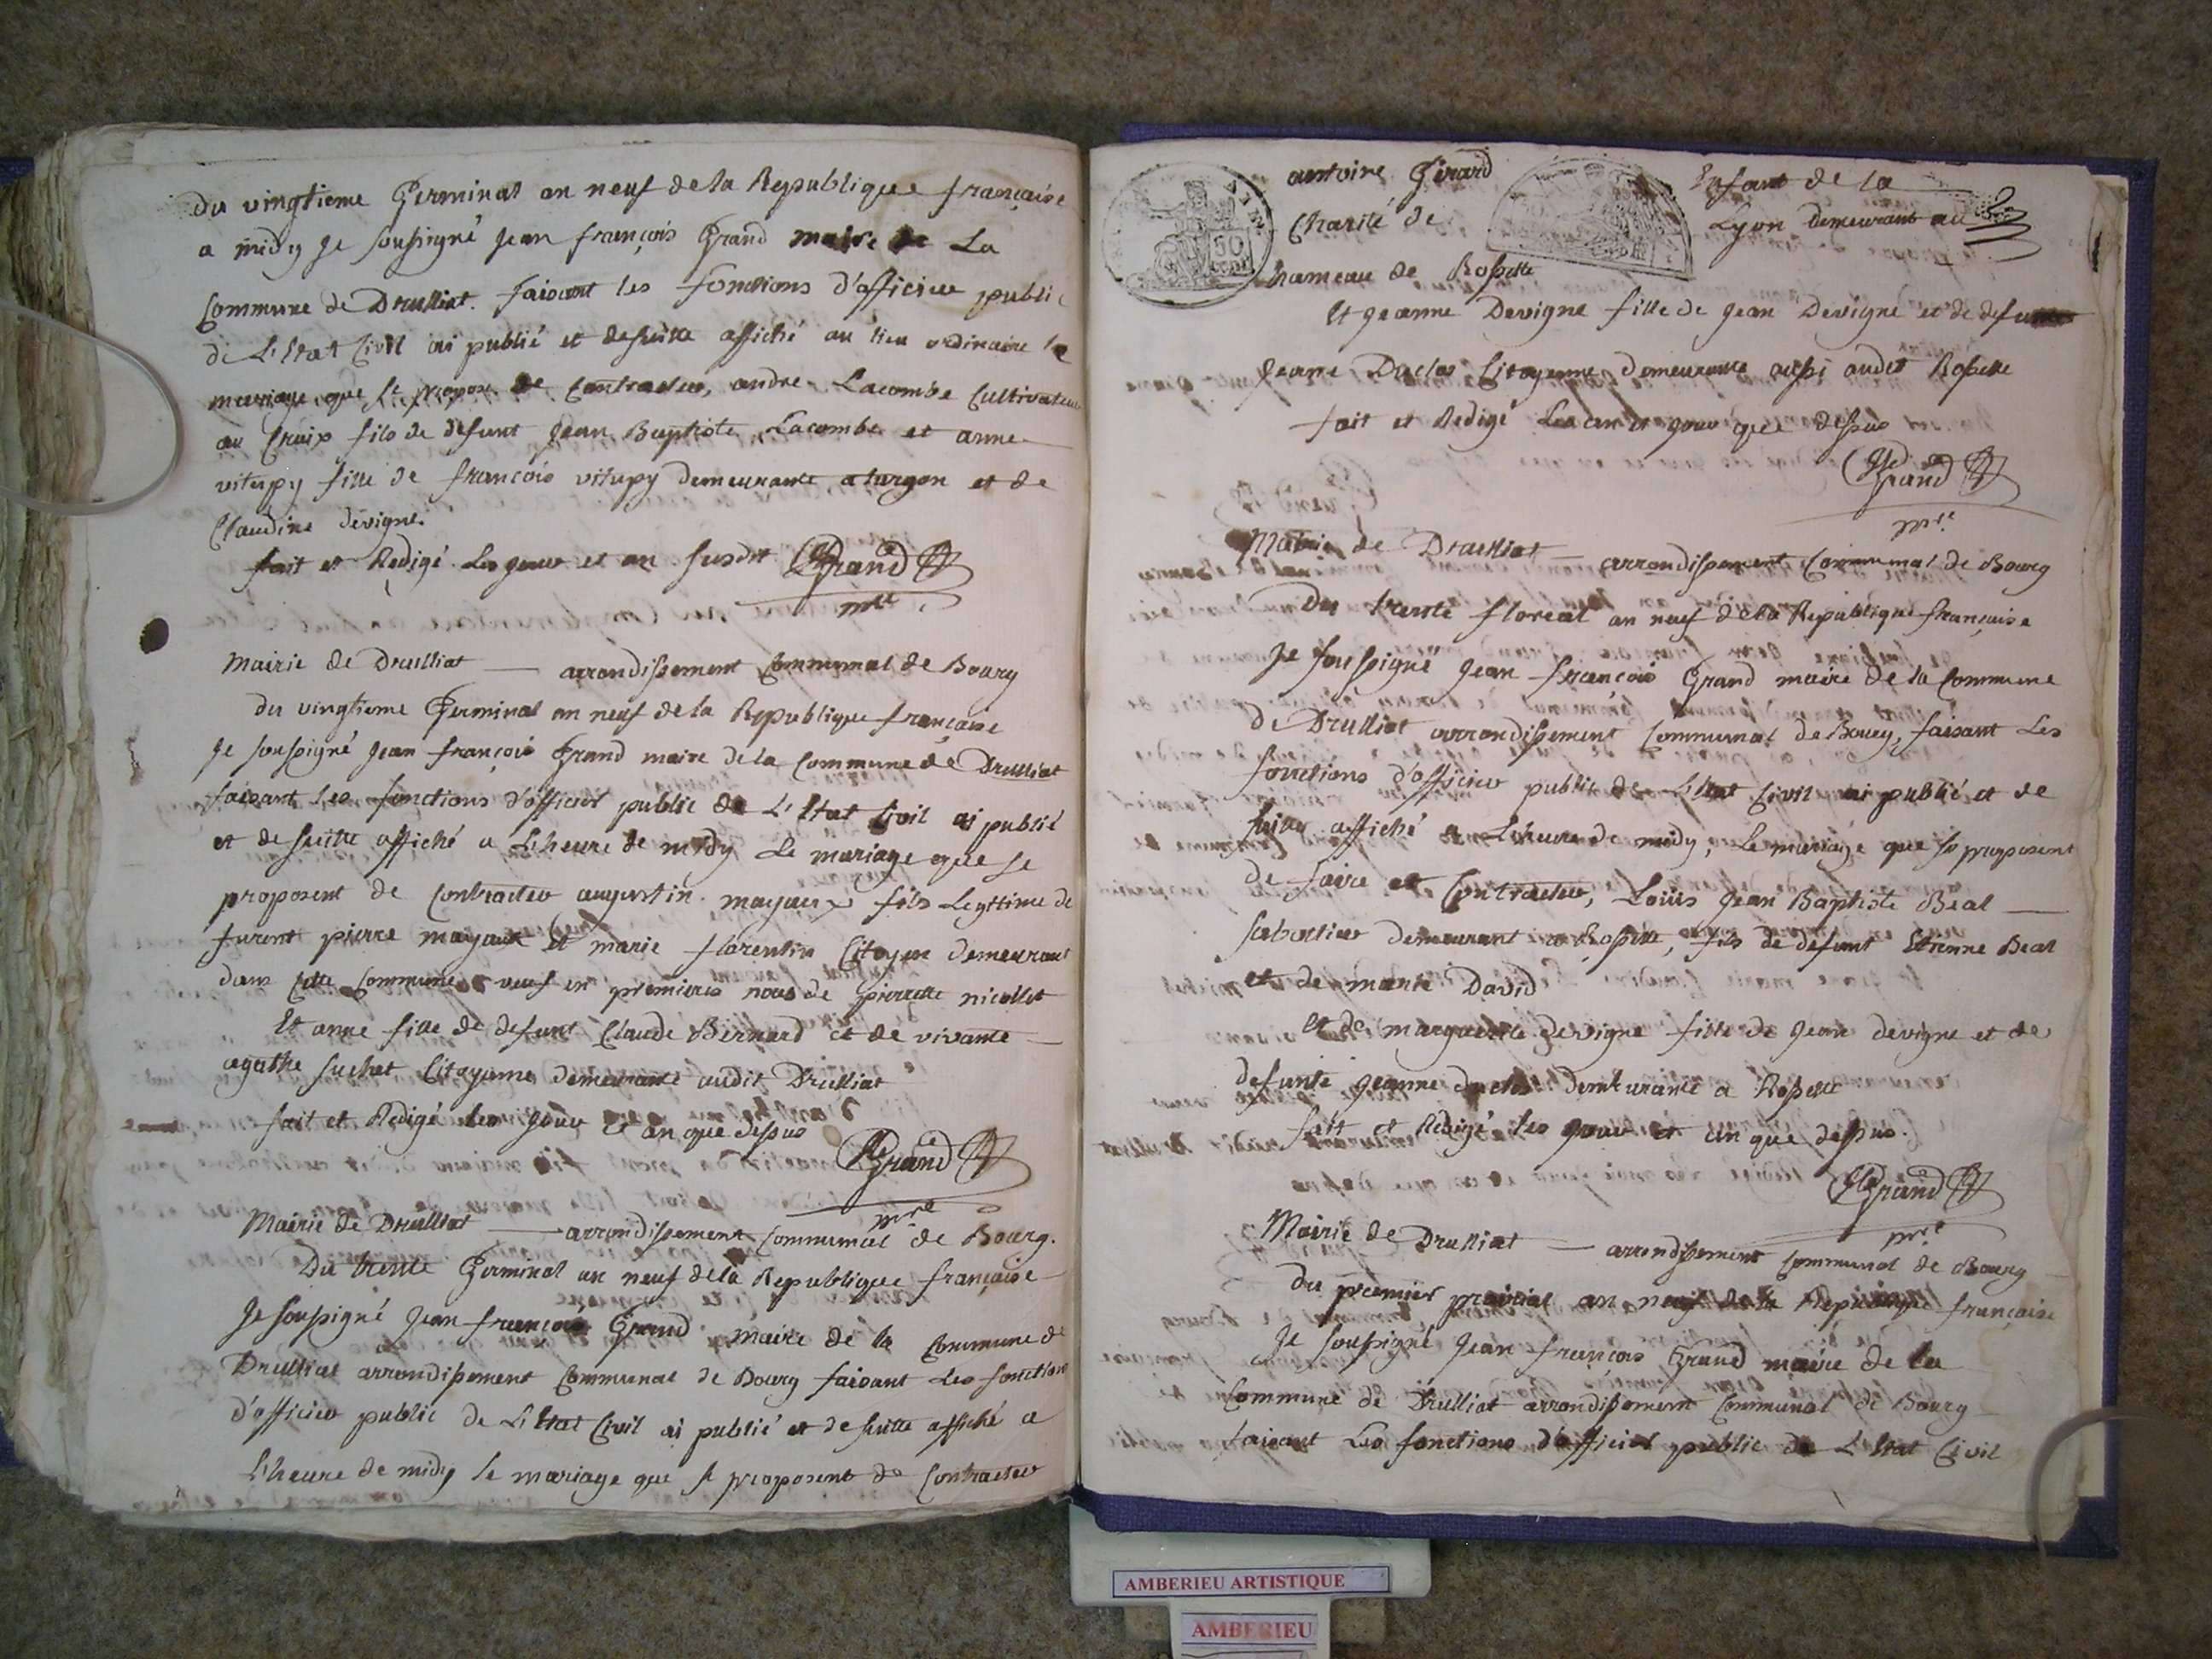 du vingtieme Germinal an neuf de la Republique française
a midy Je soussigné Jean françois Grand maire de La
Commune de Drulliat. faisant les fonctions d'officier public
de L'Etat Civil ai publié et desuitte affiché au lieu ordinaire le
mariage que se propose de Contracter, andre Lacombe Cultivateur
au Craix fils de defunt Jean Baptiste Lacombe et anne
vitupy fille de françois vitupy demeurante a turgon et de
Claudine devigne.
fait et Redigé Les jour et an susdit Grand
mre
Mairie de Drulliat — arrondissement Communal de Bourg
du vingtieme Germinal an neuf de la Republique française
Je soussigné Jean françois Grand maire de la Commune de Drulliat
faisant les fonctions d'officier public de L'Etat Civil ai publié
et de suitte affiché a L'heure de midy Le mariage que se
proposent de Contracter augustin mayaux fils Legittime de
furent pierre mayaux et marie florentin Citoyen demeurant
dans Cette Commune veuf en premieres noces de pierrette nicollet
Et anne fille de defunt Claude Bernard et de vivante
agathe suchet Citoyenne demeurante audit Drulliat
fait et Redigé les jour et an que dessus
Grand
mre
Mairie de Drulliat — arrondissement Communal de Bourg.
Du trente Germinal an neuf dela Republique française
Je soussigné Jean françois Grand maire de la Commune de
Drulliat arrondissement Communal de Bourg faisant Les fonctions
d'officier public de L'Etat Civil ai publié et de suitte affiché a
L'heure de midy le mariage que se proposent de Contracter
antoine Girard Enfant de la
Charité de Lyon demeurant au
hameau de Rossette
Et Jeanne Devigne fille de Jean Devigne et de defunte
Jeanne Duclos Citoyenne demeurante aussi audit Rossette
fait et Redigé Les an et jour que dessus
Grand
mre
Mairie de Drulliat — arrondissement Communal de Bourg
Du trente floreal an neuf dela Republique française
Je soussigné Jean françois Grand maire de la Commune
de Drulliat arrondissement Communal de Bourg, faisant Les
fonctions d'officier public de L'Etat Civil ai publié et de
suitte affiché a L'heure de midy, Le mariage que se proposent
de faire et Contracter, Louis Jean Baptiste Béal —
sabottier demeurant a Rossette, fils de defunt Etienne Béal
et de marie David
et de marguerite devigne fille de Jean devigne et de
defunte Jeanne duclos demeurante a Rossette
fait et Redigé les jour et an que dessus.
Grand
mre
Mairie de Drulliat — arrondissement Communal de Bourg
du premier prairial an neuf de la Republique française
Je soussigné Jean françois Grand maire de la
Commune de Drulliat arrondissement Communal de Bourg
faisant Les fonctions d'officier public de L'Etat Civil
AMBERIEU ARTISTIQUE
AMBERIEU